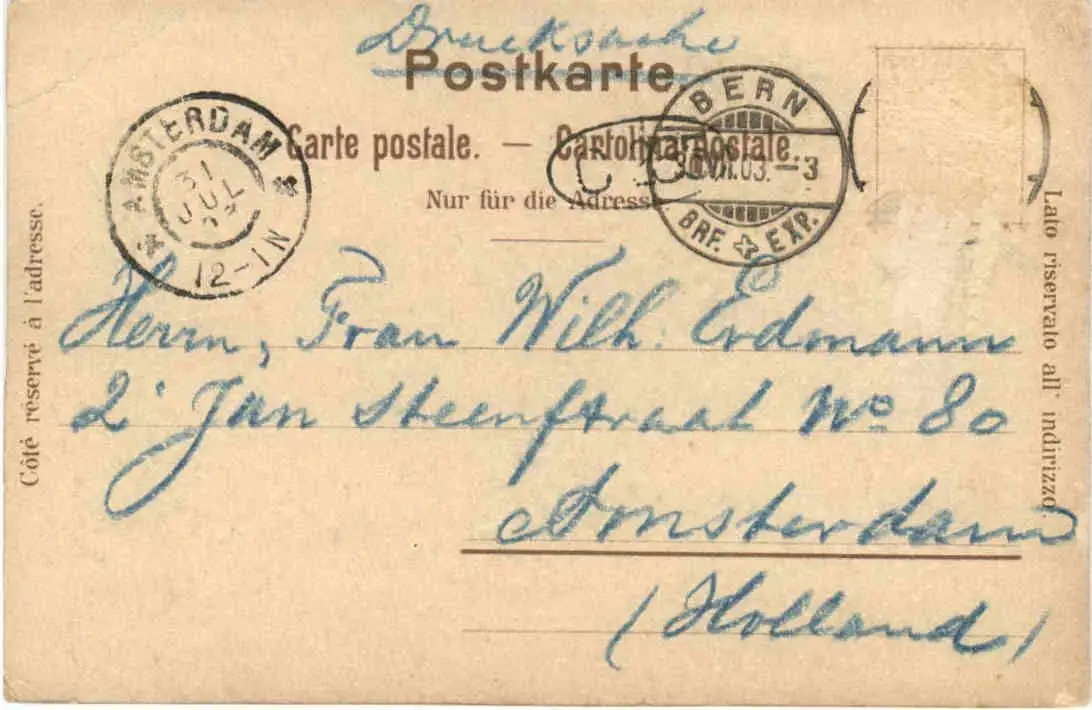 Drucksache
Postkarte.
Carte postale. — Cartolina postale.
Nur für die Adresse
AMSTERDAM
31
JUL
12-1N
BERN
VII.03.—3
BRF. EXP.
Côté réservé à l'adresse.
Lato riservato all' indirizzo.
Herrn, Frau Wilh. Erdmann
2e Jan Steenstraat No 80
Amsterdam
(Holland)